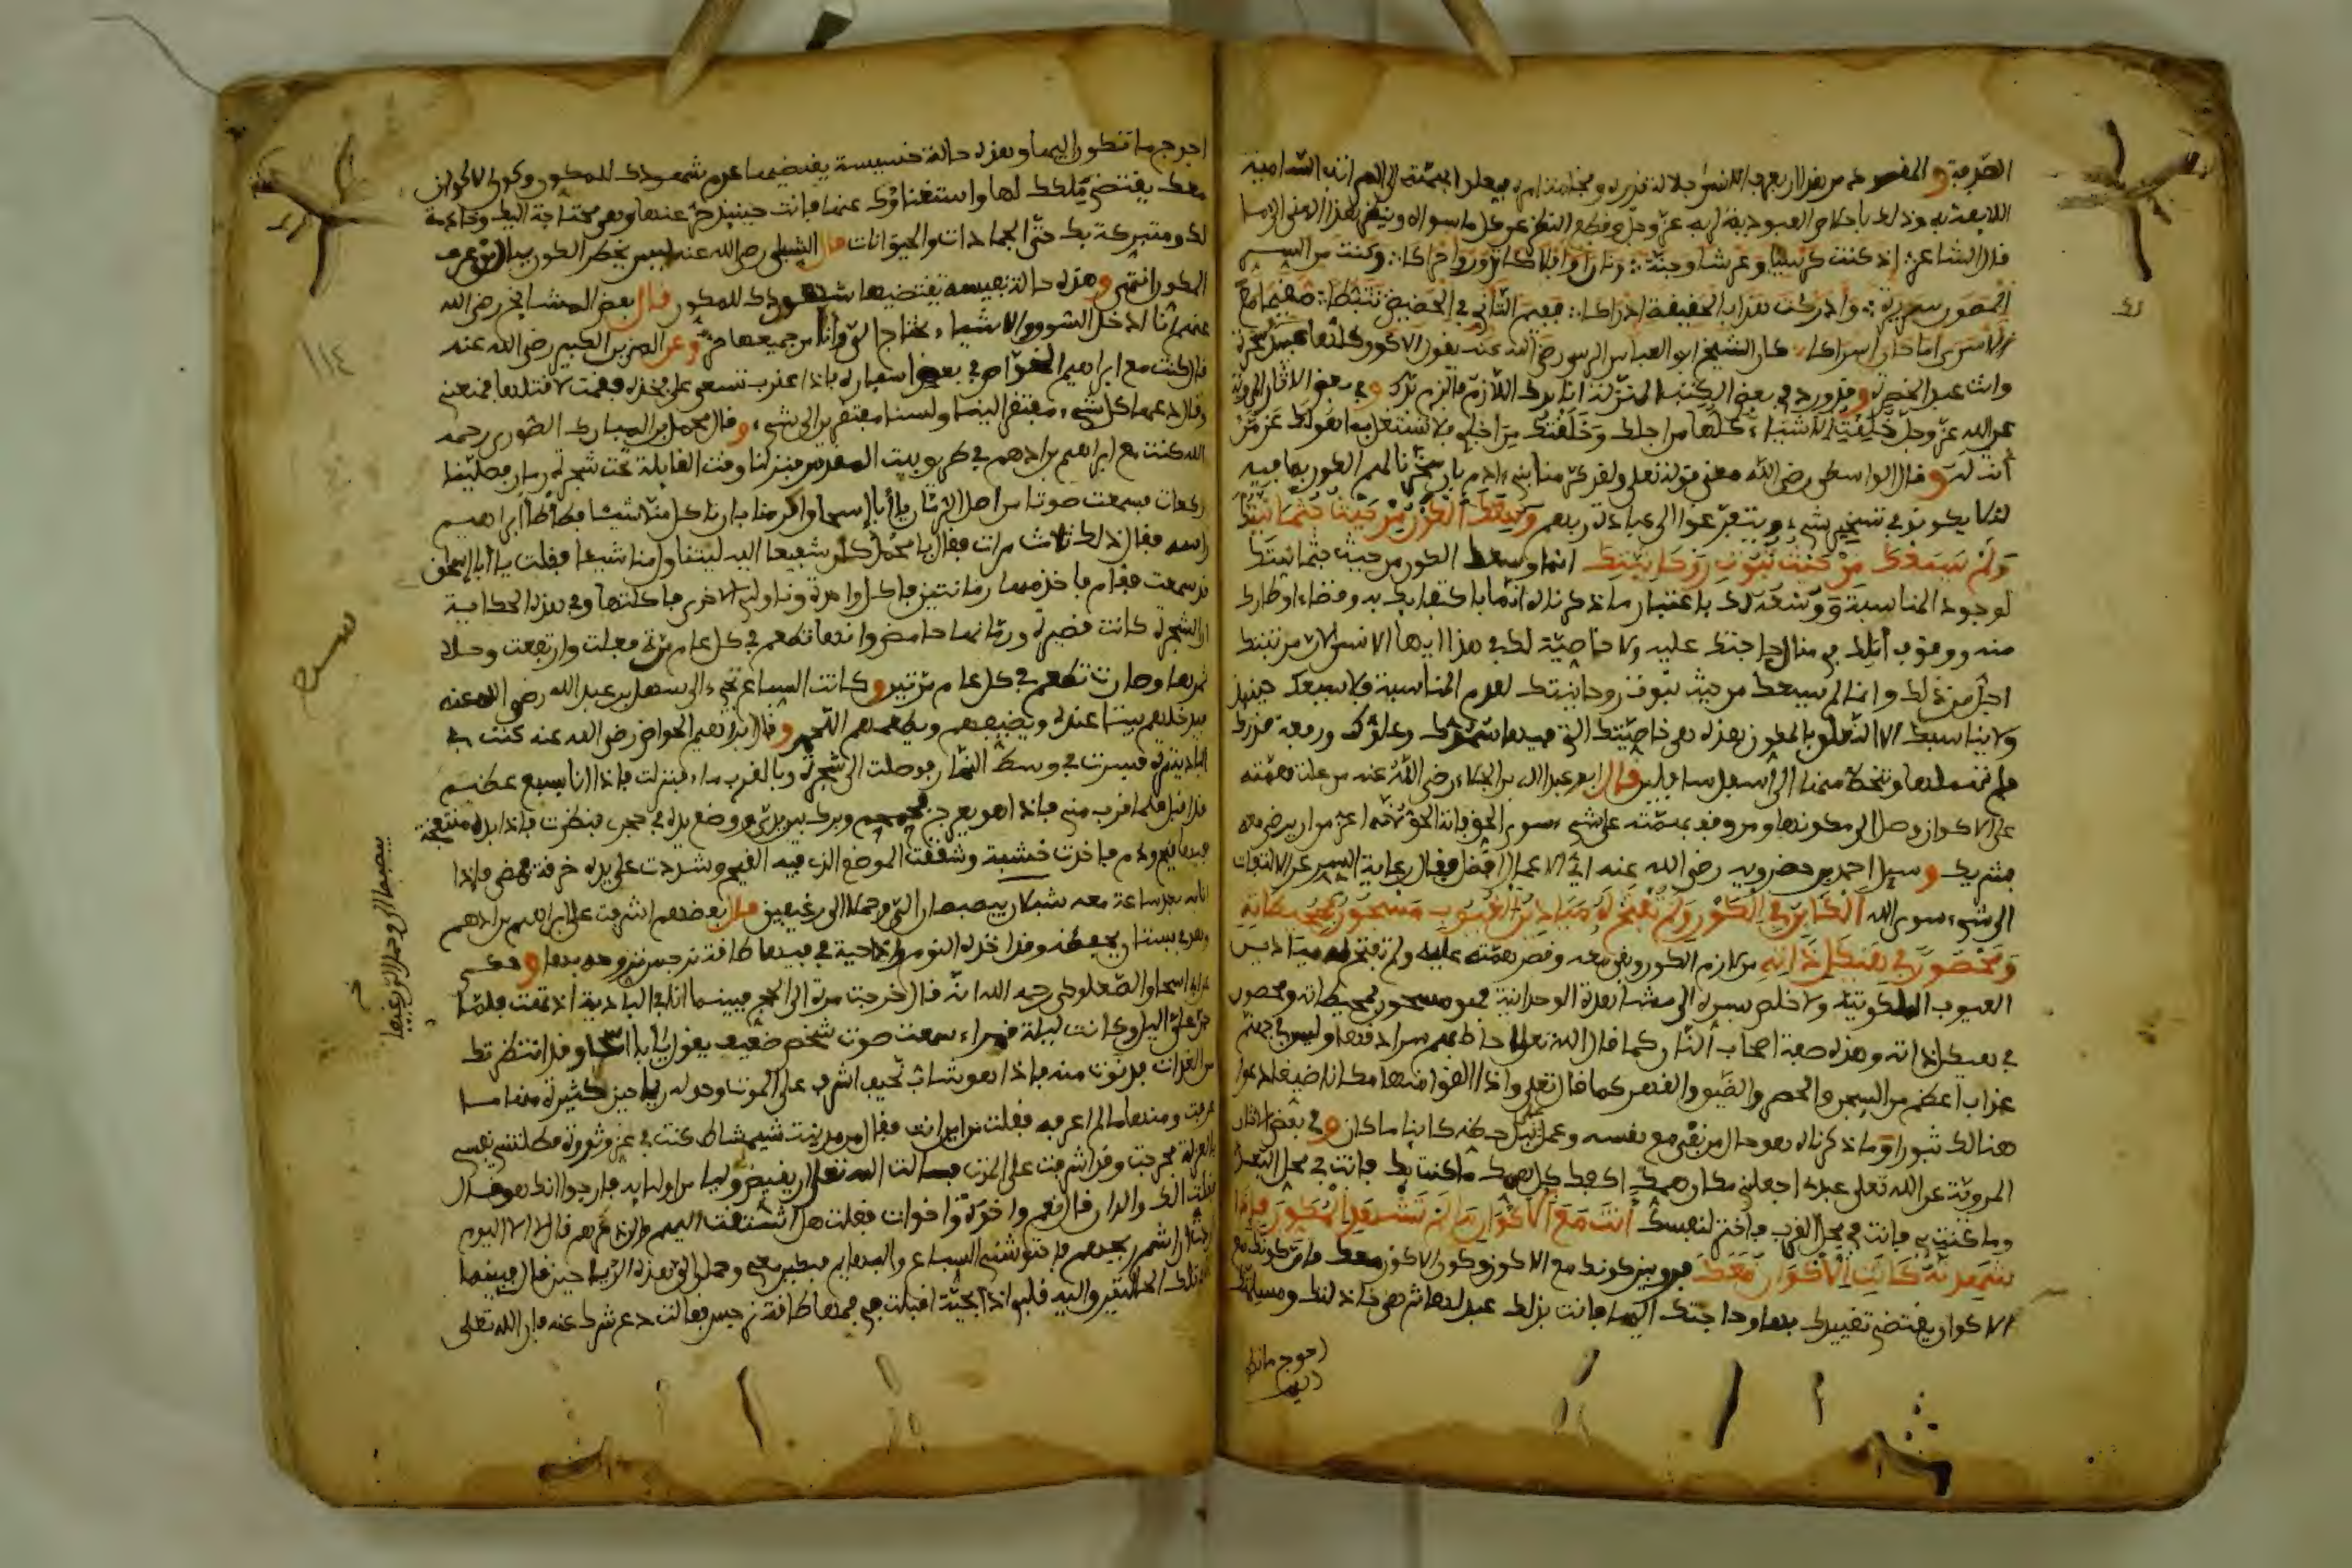 الصدفية والمقصود من هذا ان يعرف الانسان جلالة قدره وفخامة امره فيعلو بهمته الى المراتب السامية
اللائقة به وذلك باحكام العبودية لربه عز وجل وقطع النظر عن كل ما سواه وينظر لهذا المعنى
فال الشاعر إذ كنت كرسيا وعرشا وجنة ونارا وافلاكا تدور واملاكا وكنت من السر
المصون سريرة وادركت هذا بالحقيقة ادراكا ففيم التأني في الحضيض تثبطا مقيما مع
الاسرى اما حان اسراكا كان الشيخ ابو العباس المرسي رضي الله عنه يقول الاكوان كلها عبيد مسخرة
وانت عبد الحضرة وقد ورد في بعض الكتب المنزلة انا بدك اللازم فالزم بدك وفي بعض الاثار المروية
عن الله عز وجل خلقت الاشياء كلها من اجلك وخلقتك من اجلي فلا تشتغل بما هو لك عن من
أنت له وفال الواسطي رضي الله معنى قوله تعلى ولقد كرمنا بني ءادم بان سخرنا لهم الكون بما فيه
لئلا يكونوا في تسخير شيء ويتفرغوا الى عبادة ربهم وسعك الكون من حيث جثمانيتك
ولم يسعك من حيث ثبوت روحانيتك انما وسعك الكون من حيث جثمانيتك
لوجود المناسبة ووسعه لك باعتبار ما ذكرناه انما باكتفايك به وقضاء اوطارك
منه ووقوف املك في منال حاجتك عليه ولا خاصية لك في هذا ايها الانسان
اجل من ذلك وانما لم يسعك من حيث ثبوت روحانيتك لعدم المناسبة ولا يسعك حينئذ
ولا يناسبك الا التعلق بالمكون وهذه هي خاصيتك التي فيها شرفك وعلوك ورفعة قدرك
فلم تهملها وتنحط منها الى أسفل سافلين فال ابو عبد الله بن الجلاء رضي الله عنه من علت همته
على الاكوان وصل الى مكونها ومن وقف بهمته على شيء سوى الحق فاته الحق لأنه اعز من ان يرضى معه
بشريك وسيل احمد بن خضرويه رضي الله عنه اي الاعمال افضل فقال رعاية السر عن الالتفات
الى شيء سوى الله الكائن في الكون ولم تفتح له ميادين الغيوب مسجون بمحيطاته
ومحصور في هيكل ذاته من لازم الكون وبقي معه وقصر همته عليه ولم تفتح له ميادين
الغيوب الملكوتية ولا خلص بسره الى مشاهدة الوحدانية فهو مسجون بمحيطاته ومحصور
في هيكل ذاته وهذه صفة اصحاب النار كما قال الله تعلى احاط بهم سرادقها وليس في جهنم
عذاب اعظم من السجن والحصر والضيق والقهر كما فال تعلى واذا القوا منها مكانا ضيقا دعوا
هنالك ثبورا وما ذكرناه هو حال من بقي مع نفسه وعمل في نيل حظه كاينا ما كان وفي بعض الاثار
المروية عن الله تعلى عبدي اجعلني مكان همك اكفك كل همك ما كنت بك فانت في محل البعد
وما كنت بي فانت في محل القرب فاختر لنفسك أنت مع الأكوان ما لم تشهد المكون فإذا
شهدته كانت الأكوان معك فرق بين كونك مع الاكوان وكون الاكوان معك فان كونك مع
الاكوان يقتضي تقييدك بها وحاجتك اليها فانت بذلك عبد لها ثم هي خاذلتك ومسلمتك
احوج ما تكون اليها وهذه حالة خسيسة يقتضيها عدم شهودك للمكون وكون الاكوان
معك يقتضي ملكك لها واستغناؤك عنها فانت حينئذ حر عنها وهي محتاجة اليك وخادمة
لك ومتبركة بك حتى الجمادات والحيوانات فال الشبلي رضي الله عنه ليس يخطر الكون ببال من عرف
المكون انتهى وهذه حالة نفيسة يقتضيها شهودك للمكون فال بعض المشايخ رضي الله
عنهم انا ادخل السوق والاشياء تحتاج الي وانا من جميعها حر وعن المزين الكبير رضي الله عنه
فال كنت مع ابراهيم الخواص في بعض اسفاره فاذا عقرب تسعى على فخذه فقمت لاقتلها فمنعني
وفال دعها كل شيء مفتقر الينا ولسنا مفتقرين الى شيء وفال محمد بن المبارك الصوري رحمه
الله كنت مع ابراهيم بن ادهم في طريق بيت المقدس فنزلنا وقت القايلة تحت شجرة رمان فصلينا
ركعات فسمعت صوتا من اصل الرمان يا أبا إسحاق اكرمنا بان تاكل منا شيئا فطأطأ ابراهيم
راسه فقال ذلك ثلاث مرات فقال يا محمد كن شفيعا اليه ليتناول منا شيئا فقلت يا أبا إسحاق
قد سمعت فقام فاخذ منها رمانتين فاكل واحدة وناولني الاخرى فاكلتها وفي هذه الحكاية
ان الشجرة كانت قصيرة ورمانها حامض وانها تطعم في كل عام مرة فعلت وارتفعت وحلا
ثمرها وصارت تطعم في كل عام مرتين وكانت السباع تجيء الى سهل بن عبد الله رضي الله عنه
فيدخلهم بيتا عنده ويضيفهم ويطعمهم اللحم وفال ابراهيم الخواص رضي الله عنه كنت في
البادية مرة فسرت في وسط النهار فوصلت الى شجرة وبالقرب ماء فنزلت فاذا انا بسبع عظيم
قد اقبل فلما قرب مني فاذا هو يعرج فحمحم وبرك بين يدي ووضع يده في حجري فنظرت فاذا يده منتفخة
فيها قيح ودم فاخذت خشبة وشققت الموضع الذي فيه القيح وشددت على يده خرقة فمضى فاذا
انا به بعد ساعة معه شبلان يبصبصان الي وحملا الي رغيفين فال بعضهم اشرفت على ابراهيم بن ادهم
وهو في بستان يحفظه وقد اخذه النوم واذا حية في فيها طاقة نرجس تروحه بها وحكي
عن ابي اسحاق الصعلوكي رحمه الله انه فال خرجت مرة الى الحج فبينما انا في البادية اذ تهت فلما
جن علي الليل وكانت ليلة قمراء سمعت صوت شخص ضعيف يقول لي يا أبا اسحاق قد انتظرتك
من الغداة فدنوت منه فاذا هو شاب نحيف اشرف على الموت وحوله رياحين كثيرة منها ما
عرفت ومنها ما لم اعرفه فقلت من اين انت فقال من مدينة شميشاط كنت في عز وثروة فطالبتني نفسي
بالعزلة فخرجت وقد اشرفت على الموت فسالت الله تعلى ان يقيض لي وليا من اوليائه فارجوا انك هو فقال
فقلت الك والدان فال نعم واخوة واخوات فقلت هل اشتقت اليهم والى ذكرهم فال لا الا اليوم
اردت ان اشم ريحهم فاحتوشتني السباع والبهايم فبكين معي وحملن الي هذه الرياحين فال فبينما
انا في تلك الحال متفكر واليه قلبي اذا بحية اقبلت في فمها طاقة نرجس فقالت دع شرك عنه فان الله تعلى
١١٤
يبصبصان الي وحملا الي رغيفين
احوج ما تكون
اليها